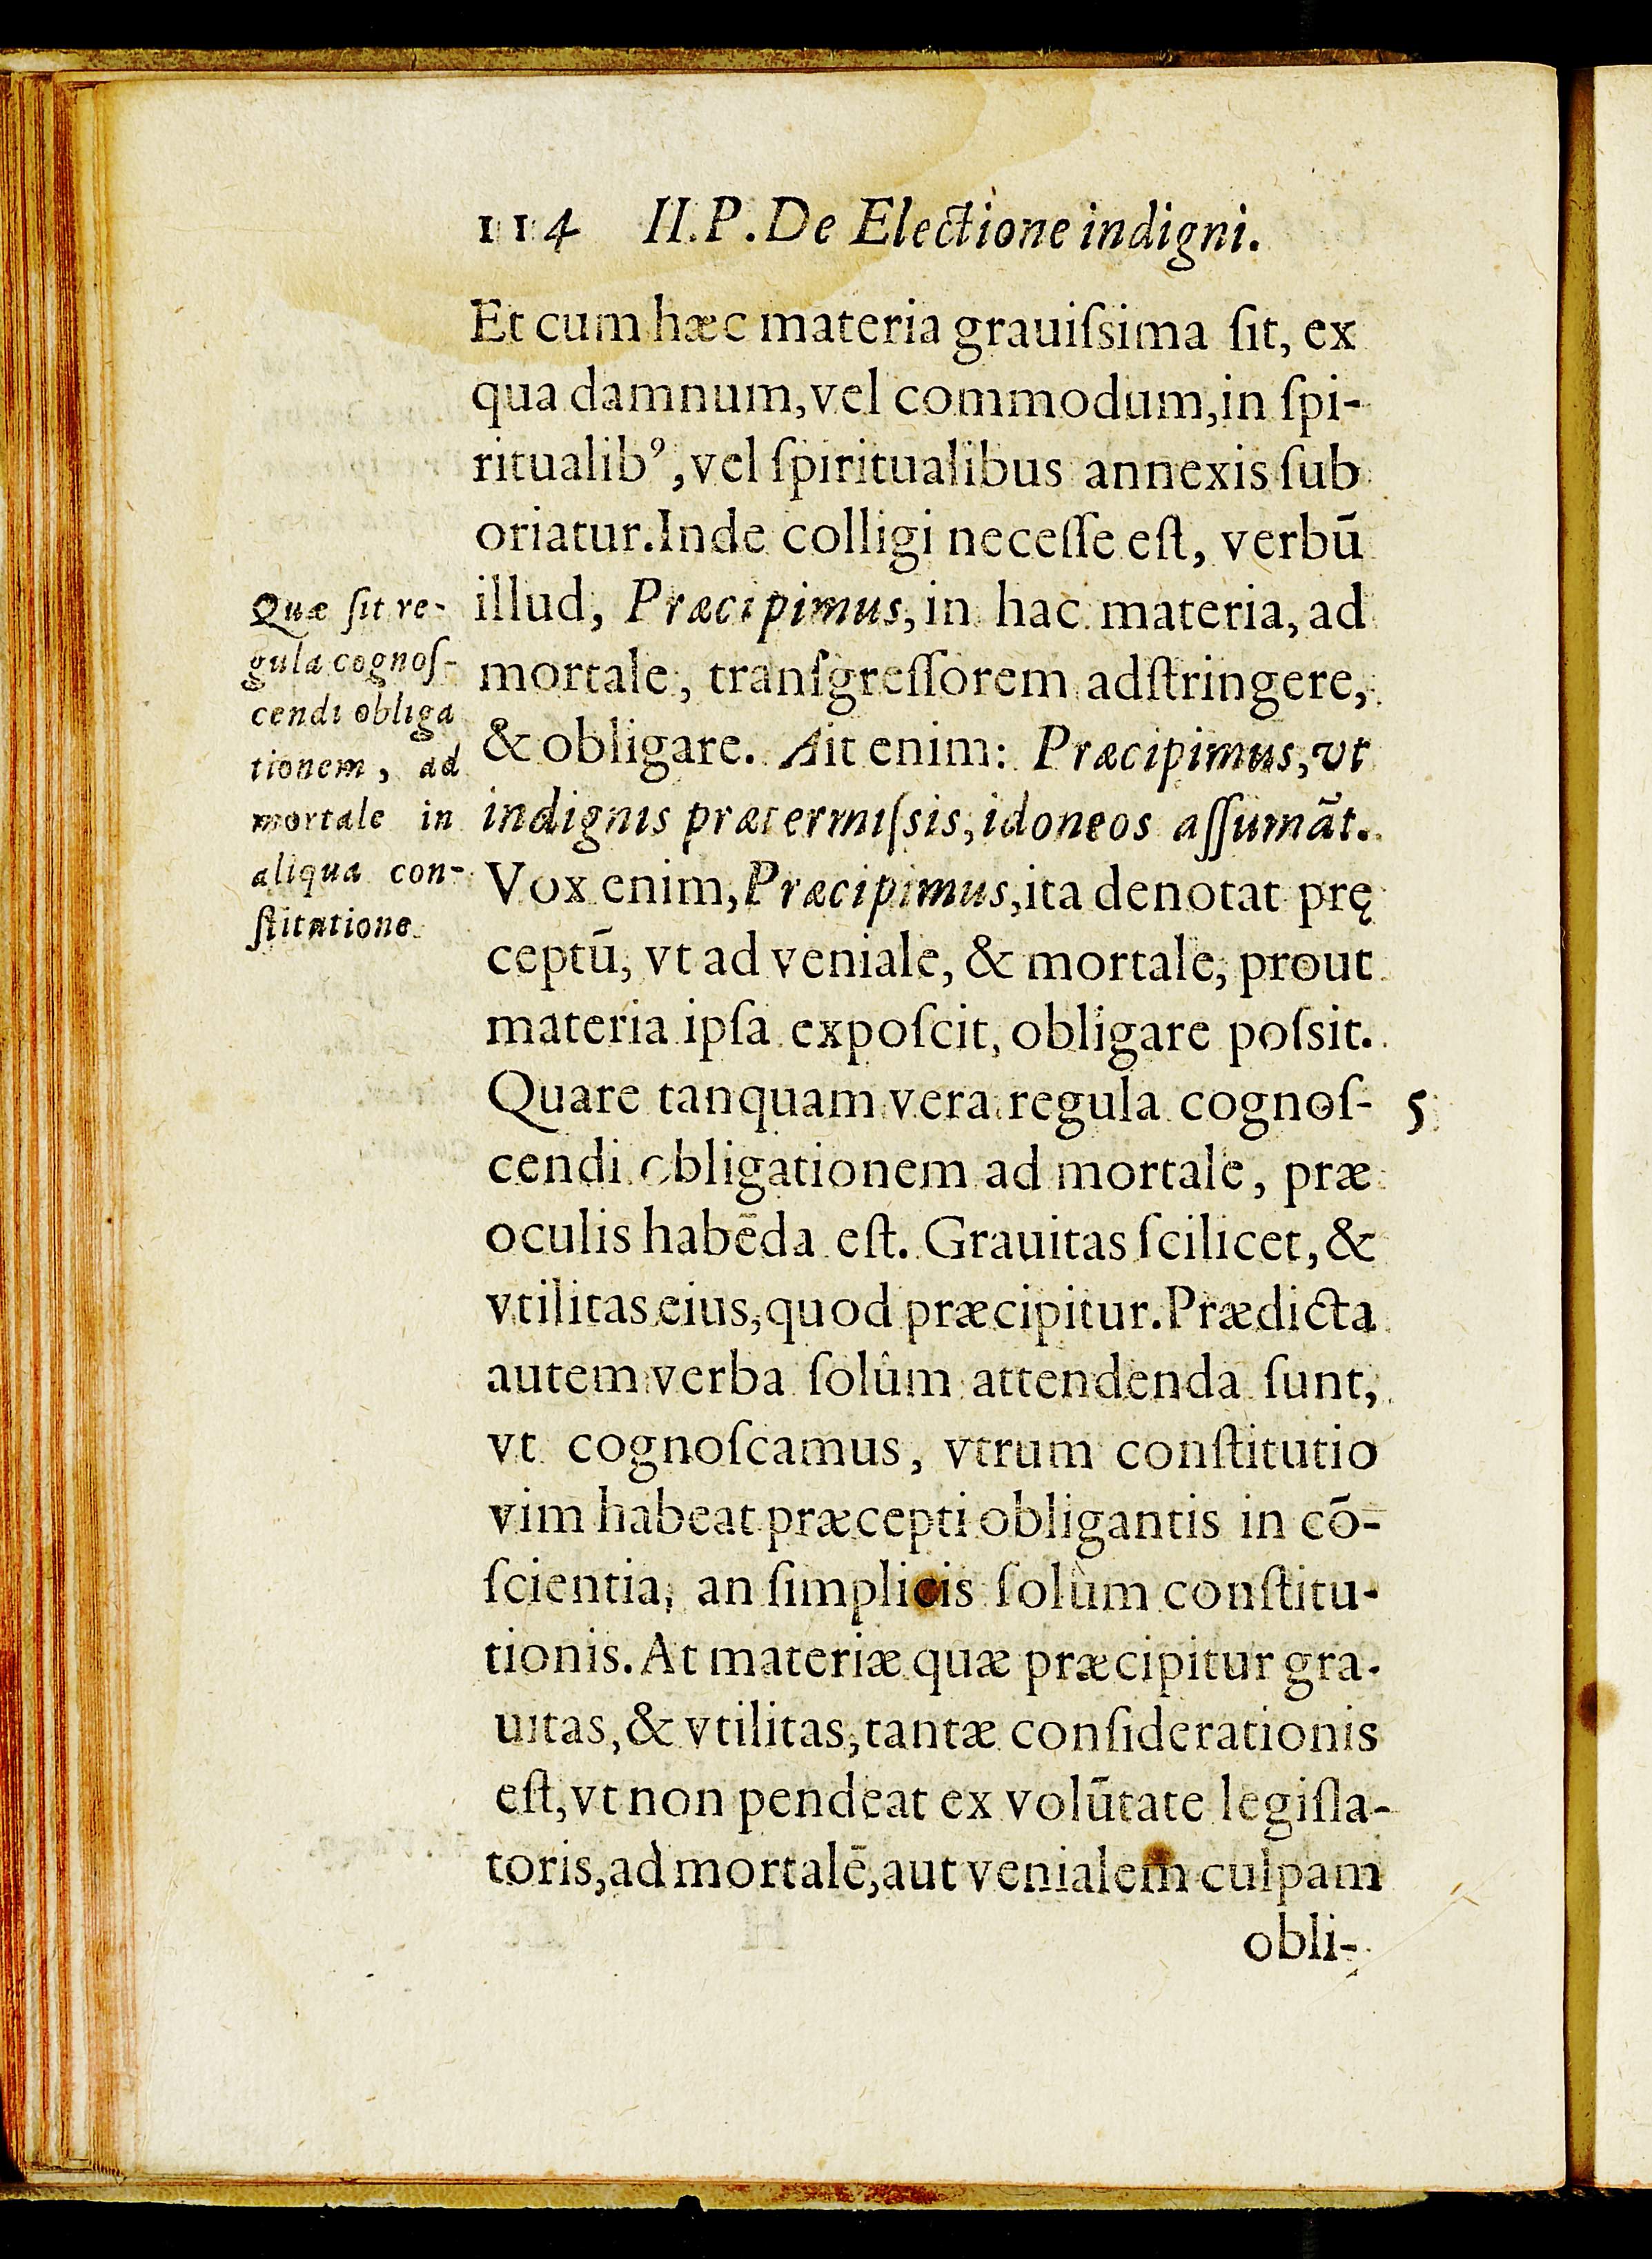 114 II.P. De Electione indigni.
Et cum hæc materia grauiſsima ſit, ex
qua damnum, vel commodum, in ſpi-
ritualibꝰ, vel ſpiritualibus annexis ſub
oriatur. Inde colligi neceſſe eſt, verbū
illud, Præcipimus, in hac materia, ad
mortale, tranſgreſſorem adſtringere,
& obligare. Ait enim: Præcipimus, vt
indignis prætermiſsis, idoneos aſſumāt.
Vox enim, Præcipimus, ita denotat prę
ceptū, vt ad veniale, & mortale, prout
materia ipſa expoſcit, obligare poſsit.
Quare tanquam vera regula cognoſ-
cendi obligationem ad mortale, præ
oculis habēda eſt. Grauitas ſcilicet, &
vtilitas eius, quod præcipitur. Prædicta
autem verba ſolûm attendenda ſunt,
vt cognoſcamus, vtrum conſtitutio
vim habeat præcepti obligantis in cō-
ſcientia, an ſimplicis ſolùm conſtitu-
tionis. At materiæ quæ præcipitur gra-
uitas, & vtilitas, tantæ conſiderationis
eſt, vt non pendeat ex volūtate legiſla-
toris, ad mortalē, aut venialem culpam
obli-
Quæ ſit re-
gula cognoſ-
cendi obliga
tionem, ad
mortale in
aliqua con-
ſtitutione.
5